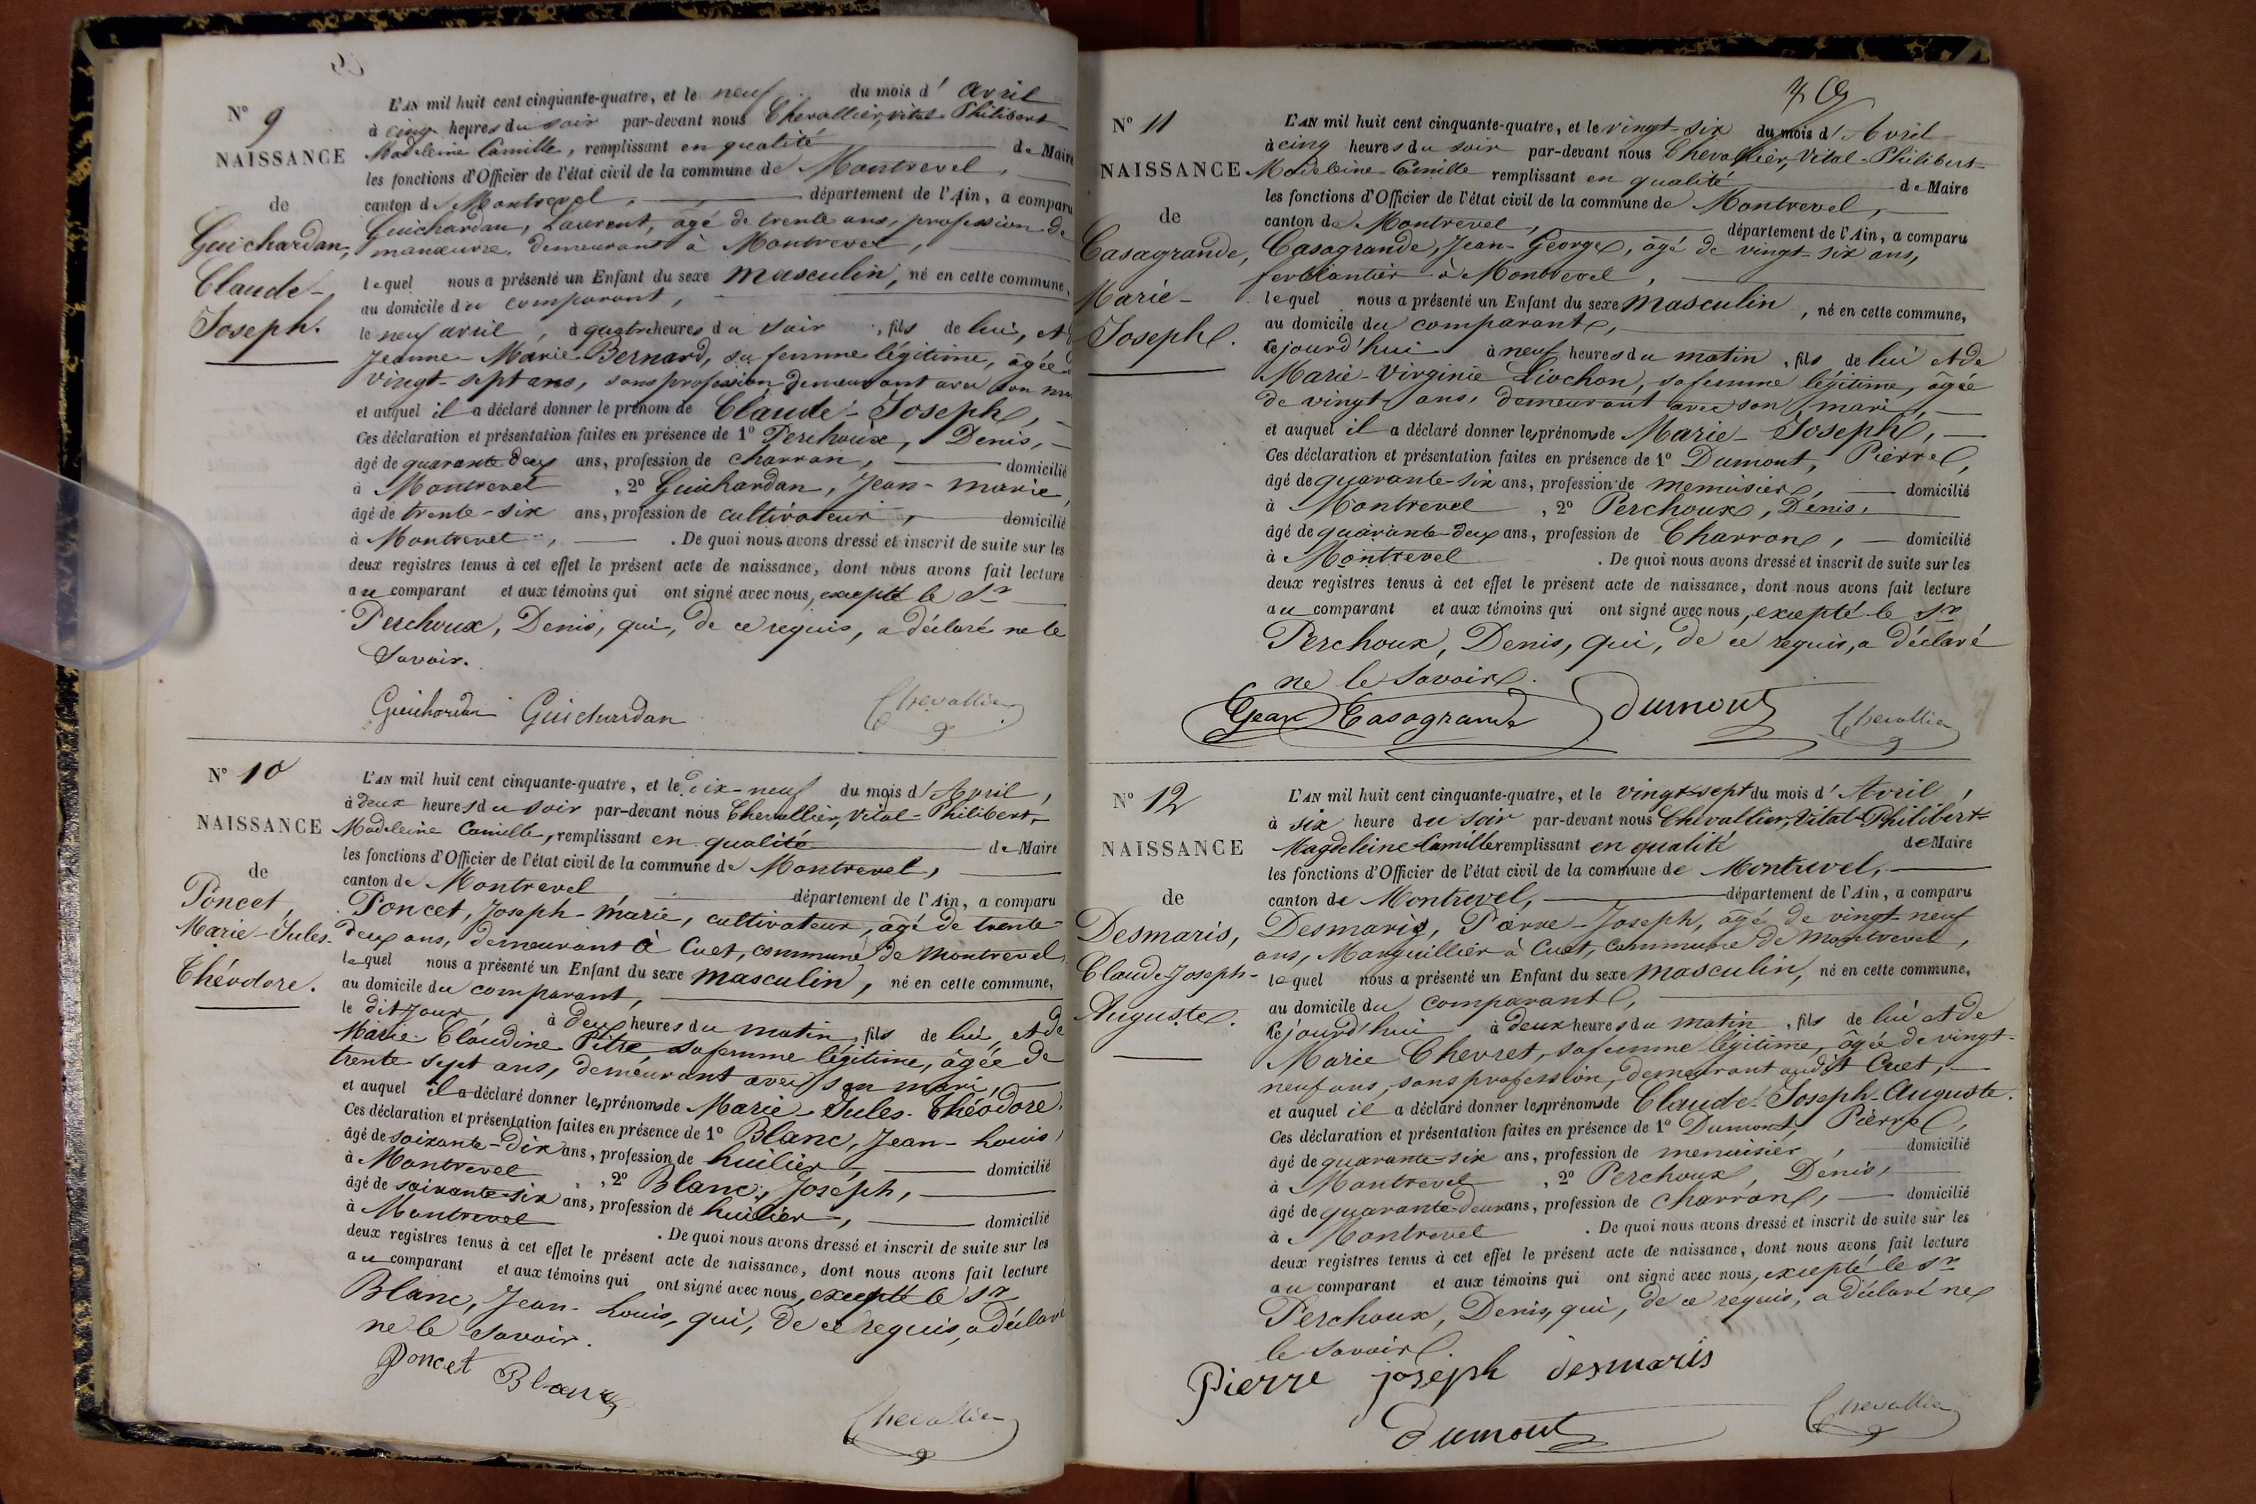 N° 9
NAISSANCE
de
Guichardan,
Claude-
Joseph.
L'AN mil huit cent cinquante-quatre, et le neuf du mois d' avril
à cinq heures du soir par-devant nous Chevallier, Vital Philibert-
Madeleine Camille, remplissant en qualité de Maire
les fonctions d'Officier de l'état civil de la commune de Montrevel,
canton de Montrevel, département de l'Ain, a comparu
Guichardan, Laurent, âgé de trente ans, profession de
manœuvre, demeurant à Montrevel,
lequel nous a présenté un Enfant du sexe masculin, né en cette commune,
au domicile du comparant,
le neuf avril, à quatre heures du soir, fils de lui, et
Jeanne-Marie Bernard, sa femme légitime, âgée
vingt-sept ans, sans profession demeurant avec son
et auquel il a déclaré donner le prénom de Claude-Joseph,
Ces déclaration et présentation faites en présence de 1° Perchoux, Denis,
âgé de quarante deux ans, profession de charron, domicilié
à Montrevel, 2° Guichardan, Jean-Marie,
âgé de trente-six ans, profession de cultivateur, domicilié
à Montrevel, . De quoi nous avons dressé et inscrit de suite sur les
deux registres tenus à cet effet le présent acte de naissance, dont nous avons fait lecture
au comparant et aux témoins qui ont signé avec nous, excepté le Sr
Perchoux, Denis, qui, de ce requis, a déclaré ne le
savoir.
Guichardan Guichardan Chevallier
N° 10
NAISSANCE
de
Poncet,
Marie-Jules-
Théodore.
L'AN mil huit cent cinquante-quatre, et le dix-neuf du mois d'Avril,
à deux heures du soir par-devant nous Chevallier, Vital-Philibert-
Madeleine Camille, remplissant en qualité de Maire
les fonctions d'Officier de l'état civil de la commune de Montrevel,
canton de Montrevel, département de l'Ain, a comparu
Poncet, Joseph-Marie, cultivateur, âgé de trente-
deux ans, demeurant à Cuet, commune de Montrevel
lequel nous a présenté un Enfant du sexe masculin, né en cette commune,
au domicile du comparant,
le dit jour, à deux heures du matin, fils de lui, et de
Marie-Claudine Pitre, sa femme légitime, âgée de
trente sept ans, demeurant avec son mari,
et auquel il a déclaré donner les prénoms de Marie-Jules-Théodore.
Ces déclaration et présentation faites en présence de 1° Blanc, Jean-Louis,
âgé de soixante-dix ans, profession de huilier, domicilié
à Montrevel, 2° Blanc, Joseph,
âgé de soixante-six ans, profession de huilier, domicilié
à Montrevel . De quoi nous avons dressé et inscrit de suite sur les
deux registres tenus à cet effet le présent acte de naissance, dont nous avons fait lecture
au comparant et aux témoins qui ont signé avec nous, excepté le Sr
Blanc, Jean-Louis, qui, de ce requis, a déclaré
ne le savoir.
Poncet Blanc
Chevallier
N° 11
NAISSANCE
de
Casagrande,
Marie-
Joseph.
L'AN mil huit cent cinquante-quatre, et le vingt-six du mois d'Avril
à cinq heures du soir par-devant nous Chevallier, Vital-Philibert-
Madeleine-Camille remplissant en qualité de Maire
les fonctions d'Officier de l'état civil de la commune de Montrevel,
canton de Montrevel, département de l'Ain, a comparu
Casagrande, Jean-George, âgé de vingt-six ans,
ferblantier à Montrevel,
lequel nous a présenté un Enfant du sexe masculin, né en cette commune,
au domicile du comparant,
Cejourd'hui à neuf heures du matin, fils de lui et de
Marie-Virginie Liochon, sa femme légitime, âgée
de vingt ans, demeurant avec son mari,
et auquel il a déclaré donner les prénoms de Marie-Joseph,
Ces déclaration et présentation faites en présence de 1° Dumont, Pierre,
âgé de quarante-six ans, profession de menuisier, domicilié
à Montrevel, 2° Perchoux, Denis,
âgé de quarante-deux ans, profession de Charron, domicilié
à Montrevel . De quoi nous avons dressé et inscrit de suite sur les
deux registres tenus à cet effet le présent acte de naissance, dont nous avons fait lecture
au comparant et aux témoins qui ont signé avec nous, excepté le Sr
Perchoux, Denis, qui, de ce requis, a déclaré
ne le savoir.
Jean Casagrande Dumont Chevallier
N° 12
NAISSANCE
de
Desmaris,
Claude Joseph-
Auguste.
L'AN mil huit cent cinquante-quatre, et le vingt-sept du mois d'Avril,
à six heure du soir par-devant nous Chevallier, Vital-Philibert-
Magdeleine Camille remplissant en qualité de Maire
les fonctions d'Officier de l'état civil de la commune de Montrevel,
canton de Montrevel, département de l'Ain, a comparu
Desmaris, Pierre-Joseph, âgé de vingt-neuf
ans, Marguillier à Cuet, commune de Montrevel,
lequel nous a présenté un Enfant du sexe masculin, né en cette commune,
au domicile du comparant,
Cejourd'hui à deux heures du matin, fils de lui et de
Marie Chevret, sa femme légitime, âgée de vingt-
neuf ans, sans profession, demeurant audit Cuet,
et auquel il a déclaré donner les prénoms de Claude-Joseph-Auguste.
Ces déclaration et présentation faites en présence de 1° Dumont, Pierre,
âgé de quarante-six ans, profession de menuisier, domicilié
à Montrevel, 2° Perchoux, Denis,
âgé de quarante-deux ans, profession de charron, domicilié
à Montrevel . De quoi nous avons dressé et inscrit de suite sur les
deux registres tenus à cet effet le présent acte de naissance, dont nous avons fait lecture
au comparant et aux témoins qui ont signé avec nous, excepté le Sr
Perchoux, Denis, qui, de ce requis, a déclaré ne
le savoir.
Pierre joseph desmaris
Dumont Chevallier